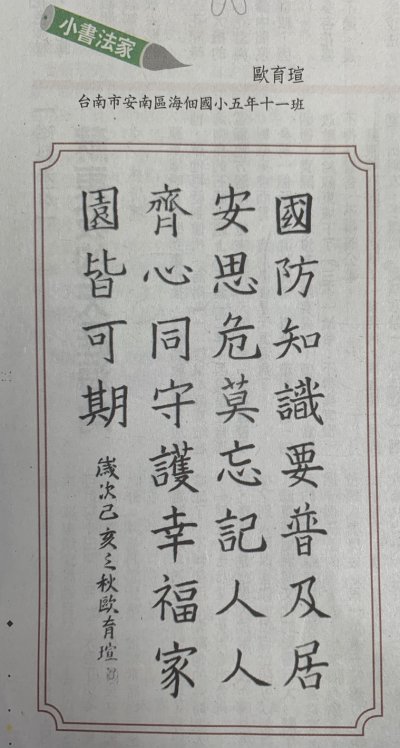 小書法家
歐育瑄
台南市安南區海佃國小五年十一班
國防知識要普及居
安思危莫忘記人人
齊心同守護幸福家
園皆可期
歲次己亥之秋歐育瑄